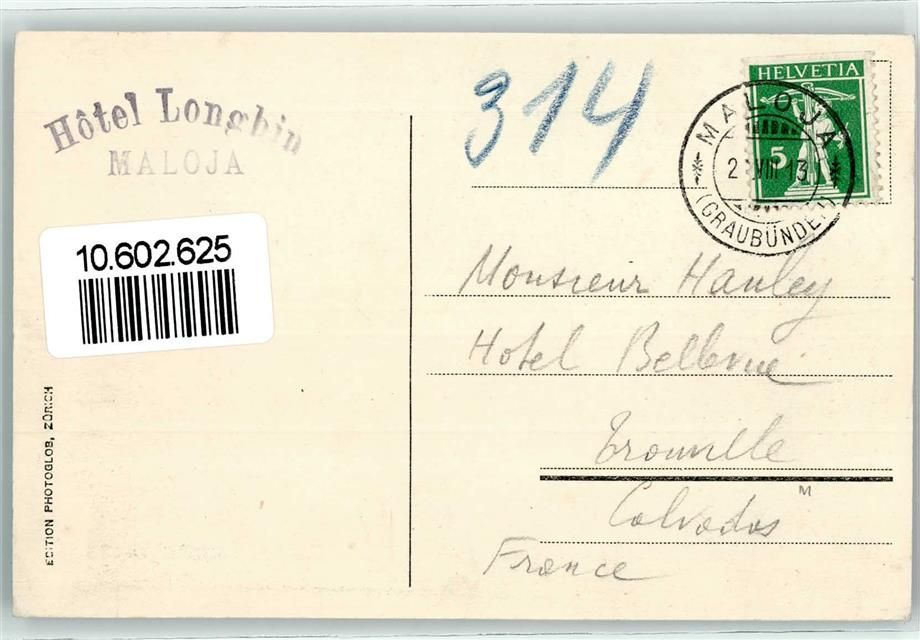 Hôtel Longhin
MALOJA
10.602.625
EDITION PHOTOGLOB, ZÜRICH
314
HELVETIA
5
MALOJA
VIII 13
(GRAUBÜNDEN)
Monsieur Hanley
Hotel Bellevue
Trouville
M
Calvados
France